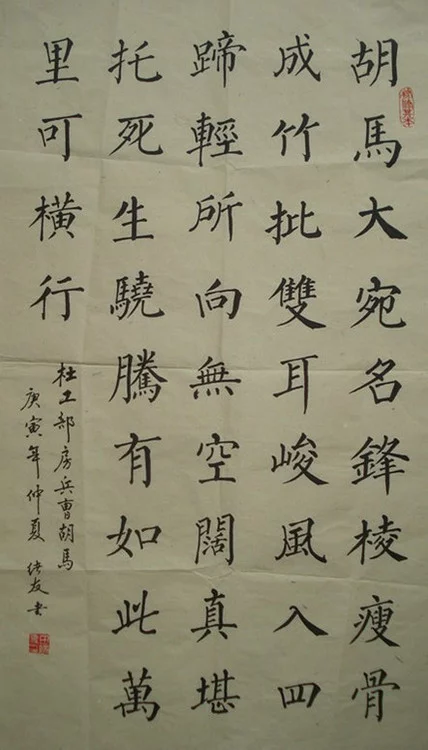 胡馬大宛名鋒棱瘦骨
成竹批雙耳峻風入四
蹄輕所向無空闊真堪
托死生驍騰有如此萬
里可橫行
杜工部房兵曹胡馬
庚寅年仲夏 友書